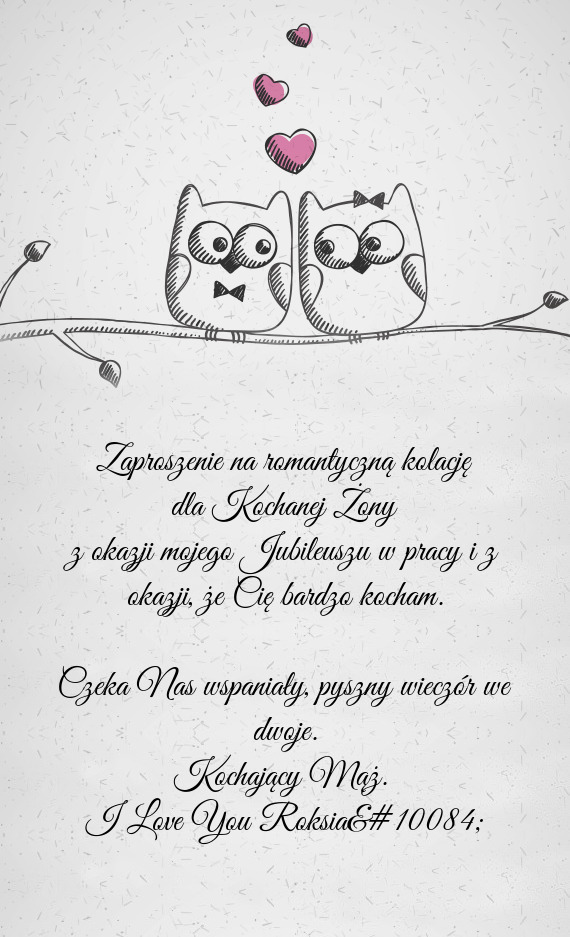 Zaproszenie na romantyczną kolację
dla Kochanej Żony
z okazji mojego Jubileuszu w pracy i z
okazji, że Cię bardzo kocham.
Czeka Nas wspaniały, pyszny wieczór we
dwoje.
Kochający Mąż.
I Love You Roksia&#10084;